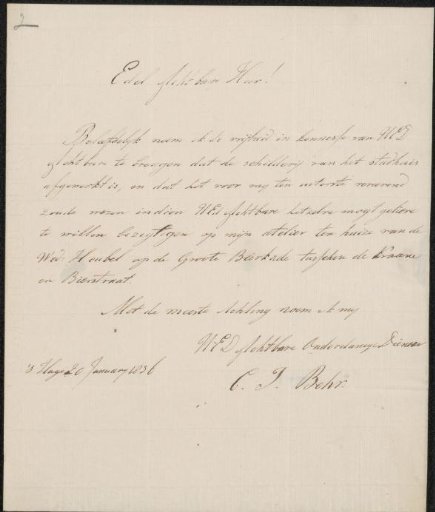 2
Edel Achtbare Heer!
Beleefdelijk neem ik de vrijheid in kennisse van UEd
achtbare te brengen dat de schilderij van het stadhuis
afgewerkt is, en dat het voor mij ten uiterste vereerend
zoude wezen indien UEd achtbare hetzelve mogt gelieve
te willen bezigtigen op mijn atelier ten huize van de
Wed. Heubel op de Groote Bierkade tusschen de Kraane
en Bierstraat.
Met de meeste Achting noem ik mij
UED Achtbare Onderdanige Dienaar
C. J. Behr.
's Hage 20 January 1836